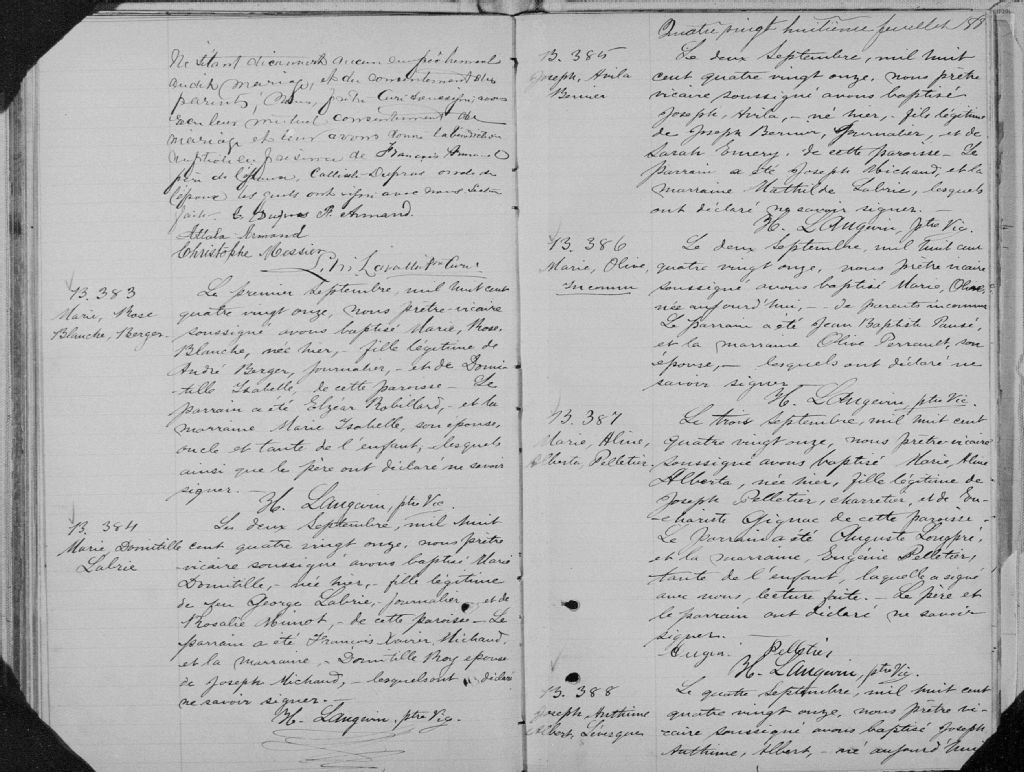 Ne s'étant découvert aucun empêchement
audit mariage, et du consentement des
parents, Nous, prêtre Curé soussigné avons
reçu leur mutuel consentement de
mariage et leur avons donné la bénédiction
nuptiale en présence de François Armand
père de l'époux, Calliste Dupras oncle de
l'épouse lesquels ont signé avec nous. Lecture
faite. C. Dupras F. Armand.
Attala Armand
Christophe Messier
Lavallée Ptre Curé
B. 383
Marie, Rose
Blanche, Berger
Le premier Septembre, mil huit cent
quatre vingt onze, nous prêtre-vicaire
soussigné avons baptisé Marie, Rose,
Blanche, née hier, - fille légitime de
André Berger, journalier, - et de Domi-
-tille Isabelle, de cette paroisse - Le
parrain a été Elzéar Robillard, - et la
marraine Marie Isabelle, son épouse,
oncle et tante de l'enfant, lesquels
ainsi que le père ont déclaré ne savoir
signer. -
H. Langevin, ptre Vic.
B. 384
Marie, Domitille
Labrie
Le deux Septembre, mil huit
cent quatre vingt onze, nous prêtre
vicaire soussigné avons baptisé Marie
Domitille, - née hier, - fille légitime
de feu George Labrie, journalier, et de
Rosalie, - de cette paroisse - Le
parrain a été François Xavier Michaud,
et la marraine, - Domitille Roy épouse
de Joseph Michaud, - lesquels ont déclaré
ne savoir signer. -
H. Langevin, ptre Vic.
Quatre vingt huitième feuillet
B. 385
Joseph, Avila
Bernier
Le deux Septembre, mil huit
cent quatre vingt onze, nous prêtre
vicaire soussigné avons baptisé
Joseph, Avila, - né hier, - fils légitime
de Joseph Bernier, Journalier, et de
Sarah Emery, de cette paroisse - Le
parrain a été Joseph Michaud, et la
marraine Mathilde Labrie, lesquels
ont déclaré ne savoir signer. -
H. Langevin, ptre Vic.
B. 386
Marie, Olive,
Inconnu
Le deux Septembre, mil huit cent
quatre vingt onze, nous prêtre vicaire
soussigné avons baptisé Marie, Olive,
née aujourd'hui, - de parents inconnus
Le parrain a été Jean Baptiste Pausé,
et la marraine Olive Perrault, son
épouse, - lesquels ont déclaré ne
savoir signer
H. Langevin, ptre Vic.
B. 387
Marie, Aline,
Alberta, Pelletier
Le trois Septembre, mil huit cent
quatre vingt onze, nous prêtre-vicaire
soussigné avons baptisé Marie, Aline
Alberta, née hier, fille légitime de
Joseph Pelletier, charretier, et de Eu-
-chariste Gignac de cette paroisse -
Le Parrain a été Auguste Longpré,
et la marraine, Eugénie Pelletier,
tante de l'enfant, laquelle a signé
avec nous, lecture faite. - Le père et
le parrain ont déclaré ne savoir
signer.
Eugen. Pelletier
H. Langevin, ptre Vic.
B. 388
Joseph, Anthime
Albert, Levesque
Le quatre Septembre, mil huit cent
quatre vingt onze, nous prêtre vi-
-caire soussigné avons baptisé Joseph
Anthime, Albert, - né aujourd'hui